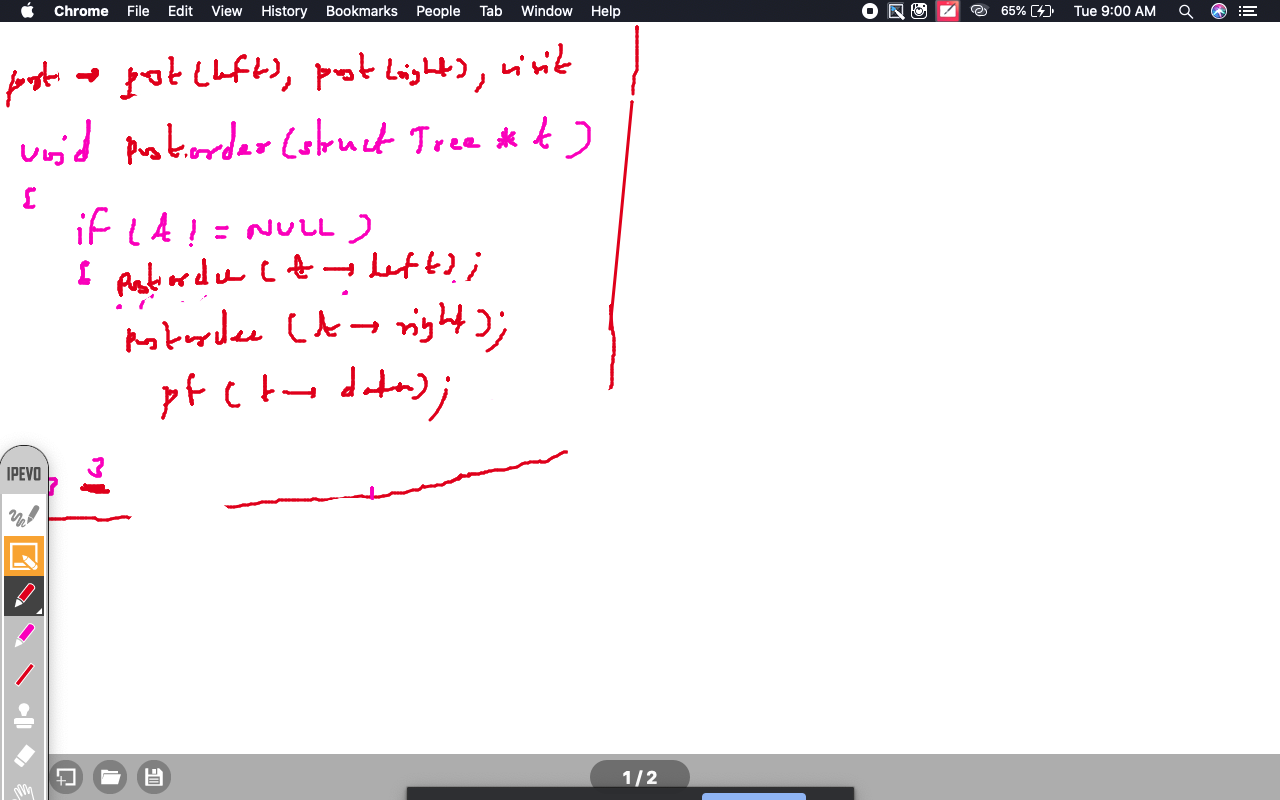 Chrome File Edit View History Bookmarks People Tab Window Help 65% Tue 9:00 AM
post → post (left), post (right), visit
void postorder (struct Tree * t )
{
if ( t != NULL )
{ postorder ( t → left);
postorder ( t → right);
pf ( t → data);
3
IPEVO
1 / 2